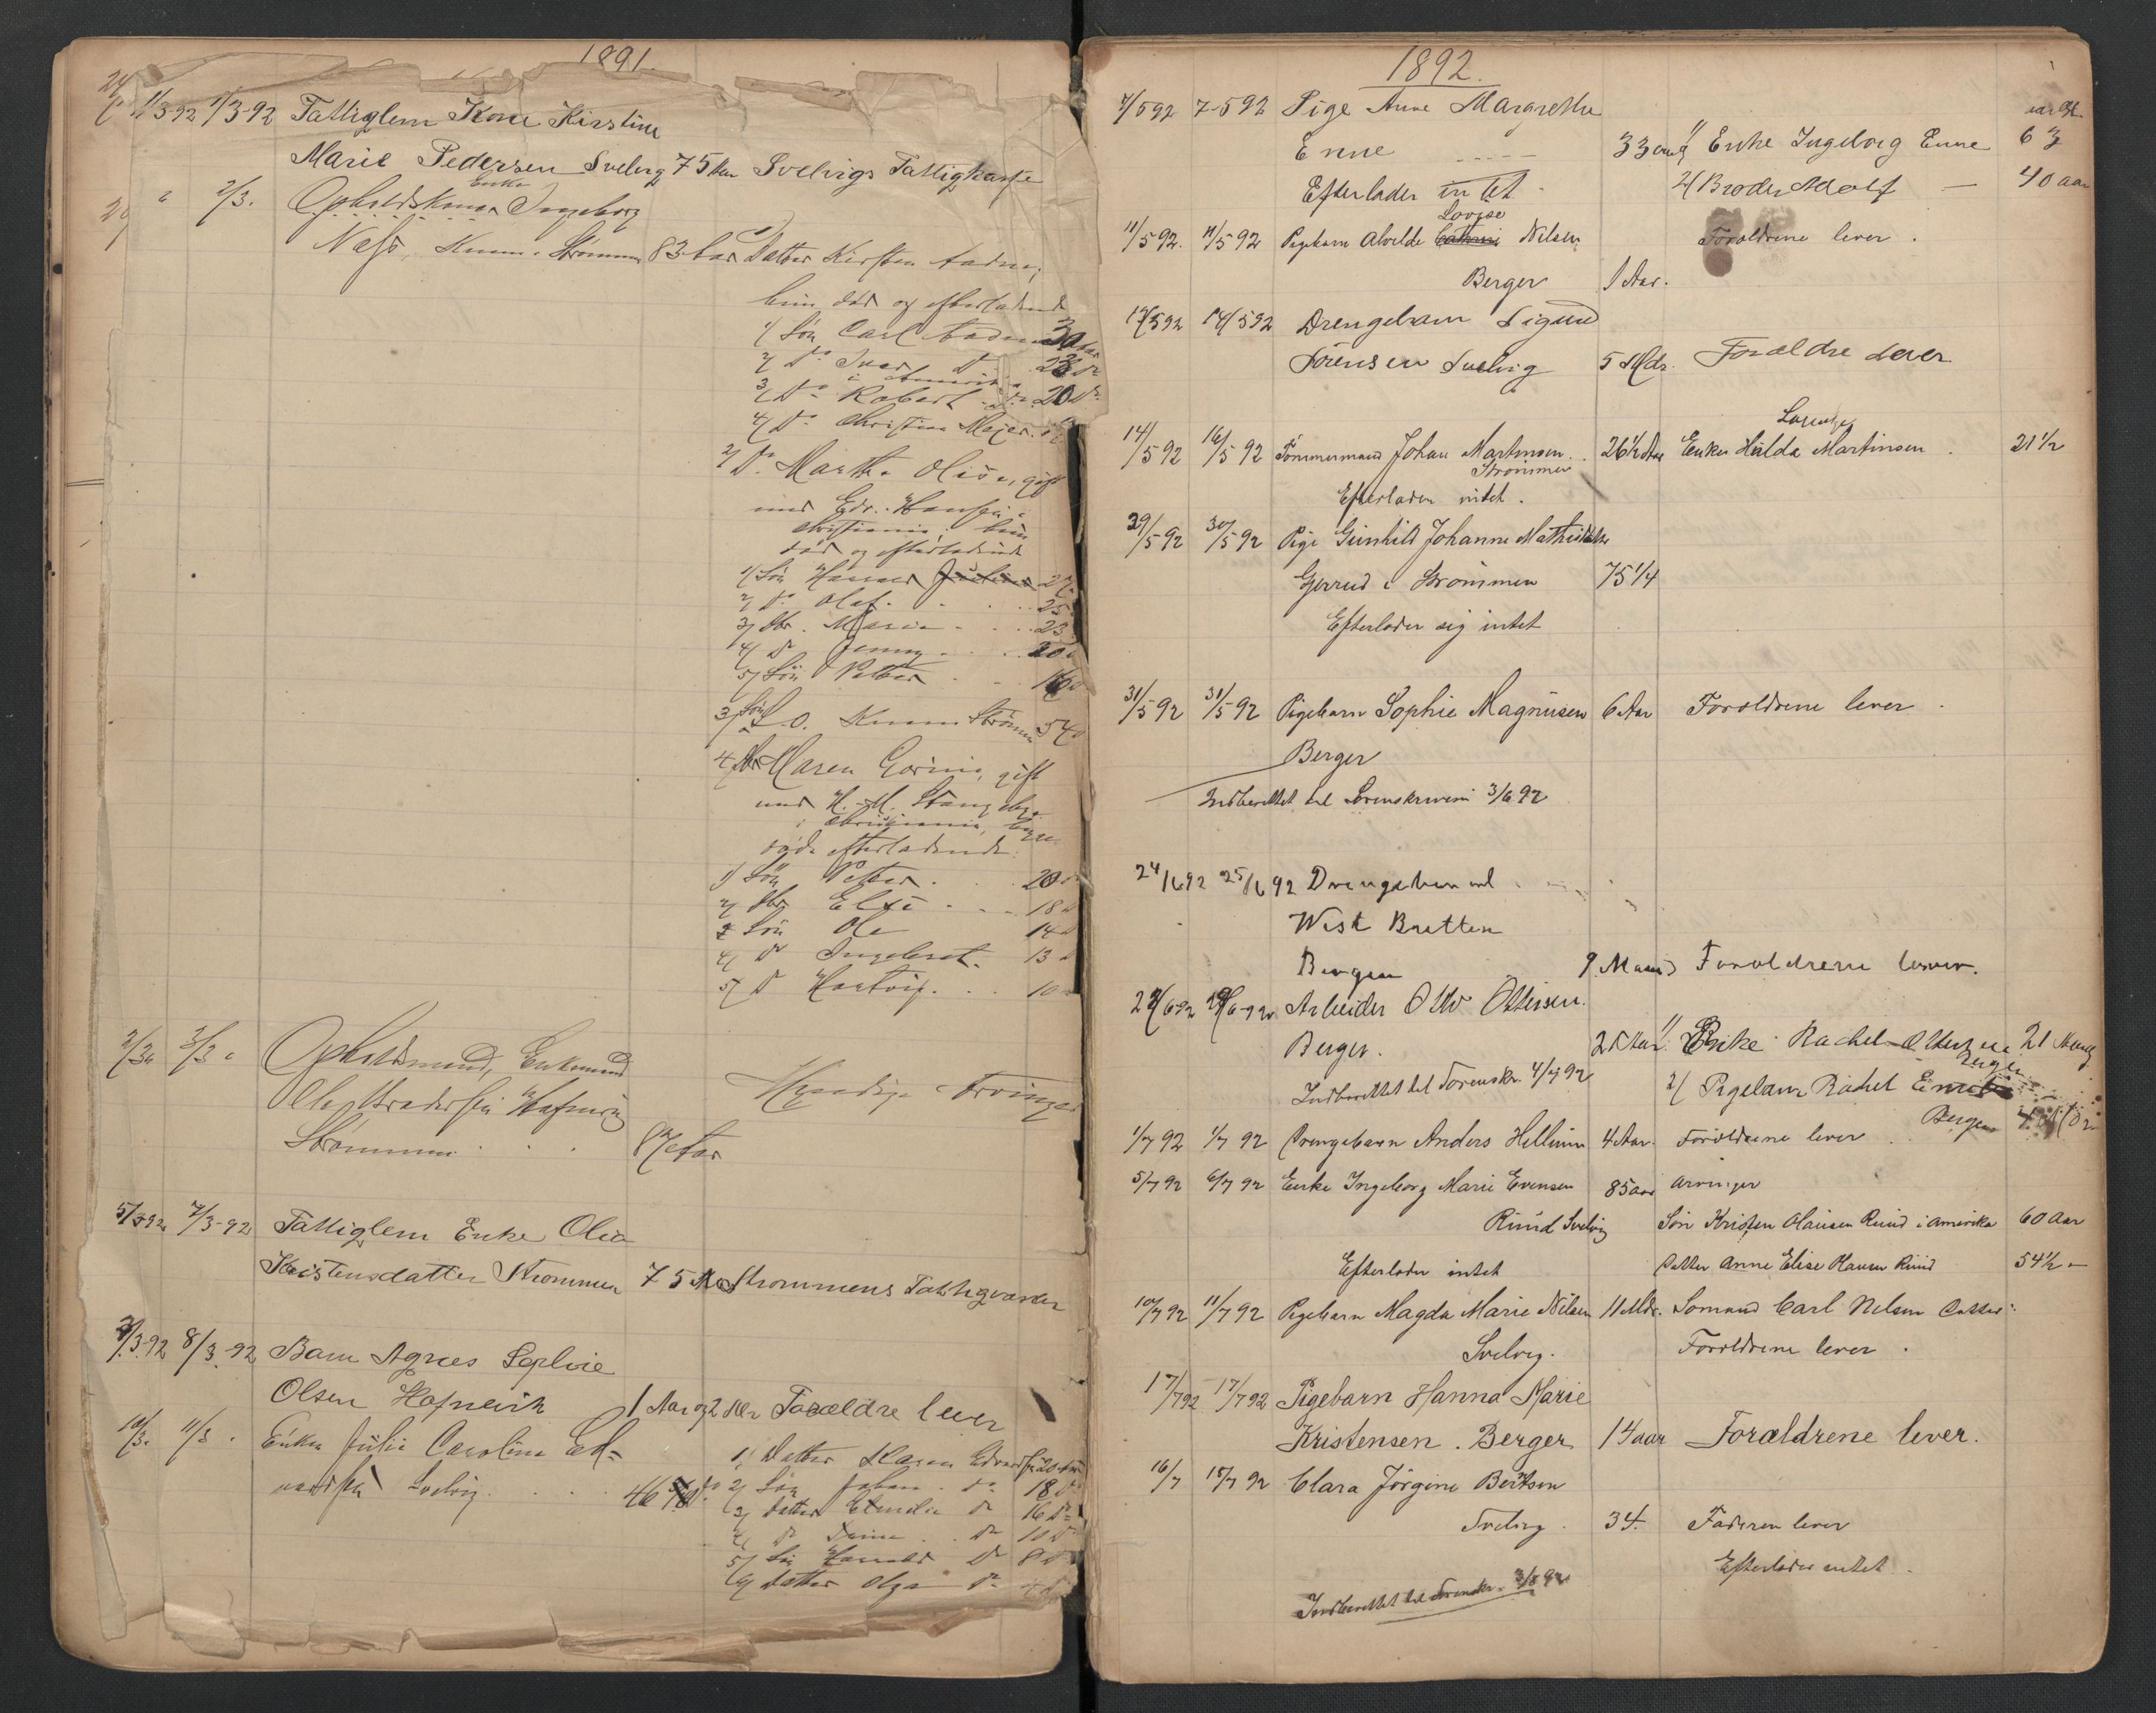 1891.
1/3-92 1/3-92 Fattiglem Kone Kirstine
Marie Pedersen Svelvig 75 Aar Svelvigs Fattigkasse
" 2/3. Opholdskone Enke Ingeborg
Næss, Knem i Strømmen 83 Aar 1) Datter Kirsten
hun død og efterladende
1/ Søn Carl 30 Aar
2/ Do Ivar Do 23 Do
i Amerika
3/ Do Robert Do 20 Do
4/ Do Christian Mejer
2/ Do Marthe Olise, gift
med Edv. Hansen i
Christiania, hun
død og efterladende
1/ Søn 27
2/ Do Olaf 25
3/ Dtr. Maria 23
4/ D Jenny 20
5/ Søn Petter 16
3/ Søn L. O. Knem Strømm 54
4/ Dtr Maren Gorine, gift
med H. M. Stangeby
i Christiania, begge
døde efterladende:
1/ Søn Petter 20
2/ Dtr Elise 18
3 Søn Ole 14
4/ D Ingebret 13
5/ D Hartvig 10
2/3 3/3 " Opholdsmand, Enkemand
Ole Hafnvig
Strømmen 87 Aar Myndige Arvinger
5/3 92 7/3-92 Fattiglem Enke Olia
Kristensdatter Strømmen 75 Aar Strømmens Fattigvæsen
7/3-92 8/3-92 Barn Agnes Sophie
Olsen Hafnevik 1 Aar og 2 Mdr Forældre lever
10/3. 11/3. Enken Julie Caroline Ed=
vardsen Svelvig 46 1) Datter Maren Edvardsen 20 Aar
2) Søn Johan Do 18 Do
3) Datter Do 16 Do
4) D Do 10 D
5) Søn Harald D 8 D
6) Datter Olga D
1892.
7/5 92 7-5 92 Pige Anne Margrethe
Enne 33 aar 1/ Enke Ingeborg Enne 63
Efterlader intet 2/ Broder Adolf — 40 aar
11/5 92. 11/5 92 Pigebarn Alvilde Lovise Nilsen Forældrene lever.
Berger 1 Aar.
12/5 92 14/5 92 Drengebarn Sigurd
Sørensen Svelvig 5 Mdr. Forældre lever
14/5 92 16/5 92 Tømmermand Johan Martinsen 26½ Aar Enke Hilda Lorentze Martinsen 21½
Strømmen
Efterlader intet.
29/5 92 30/5 92 Pige Gunhild Johanne
Gjerud i Strømmen 75 1/4
Efterlader sig intet
31/5 92 31/5 92 Pigebarn Sophie Magnusen 6 Aar Forældrene lever.
Berger
Indberettet til Sorenskriveren 3/6 92
24/6 92 25/6 92 Drengebarn
West Bratten
Berger 9 Maand Forældrene lever.
6-92 6-92 Arbeider Otto Ottersen
Berger. 25 Aar. 1/ Enke Rachel Ottersen 21
Indberettet til Sorenskr. 4/7 92 2/ Pigebarn Rachel
Berger
1/7 92 1/7 92 Drengebarn Anders Hellum 4 Aar. Forældrene lever.
5/7 92 6/7 92 Enke Ingeborg Marie Evensen 85 aar Arvinger
Ruud Svelvig Søn Kristen Olausen Ruud i Amerika 60 Aar
Efterlader intet Datter Anne Elise Hansen Ruud 54½ —
10/7 92 11/7 92 Pigebarn Magda Marie Nilsen 11 Mdr. Sømand Carl Nilsen Datter.
Svelvig. Forældrene lever.
17/7 92 17/7 92 Pigebarn Hanna Marie
Kristensen. Berger 14 aar Forældrene lever.
16/7 18/7 92 Clara Jørgine Bertsen
Svelvig. 34. Faderen lever
Efterlader intet.
Indberettet til Sorenskr. 3/8 92